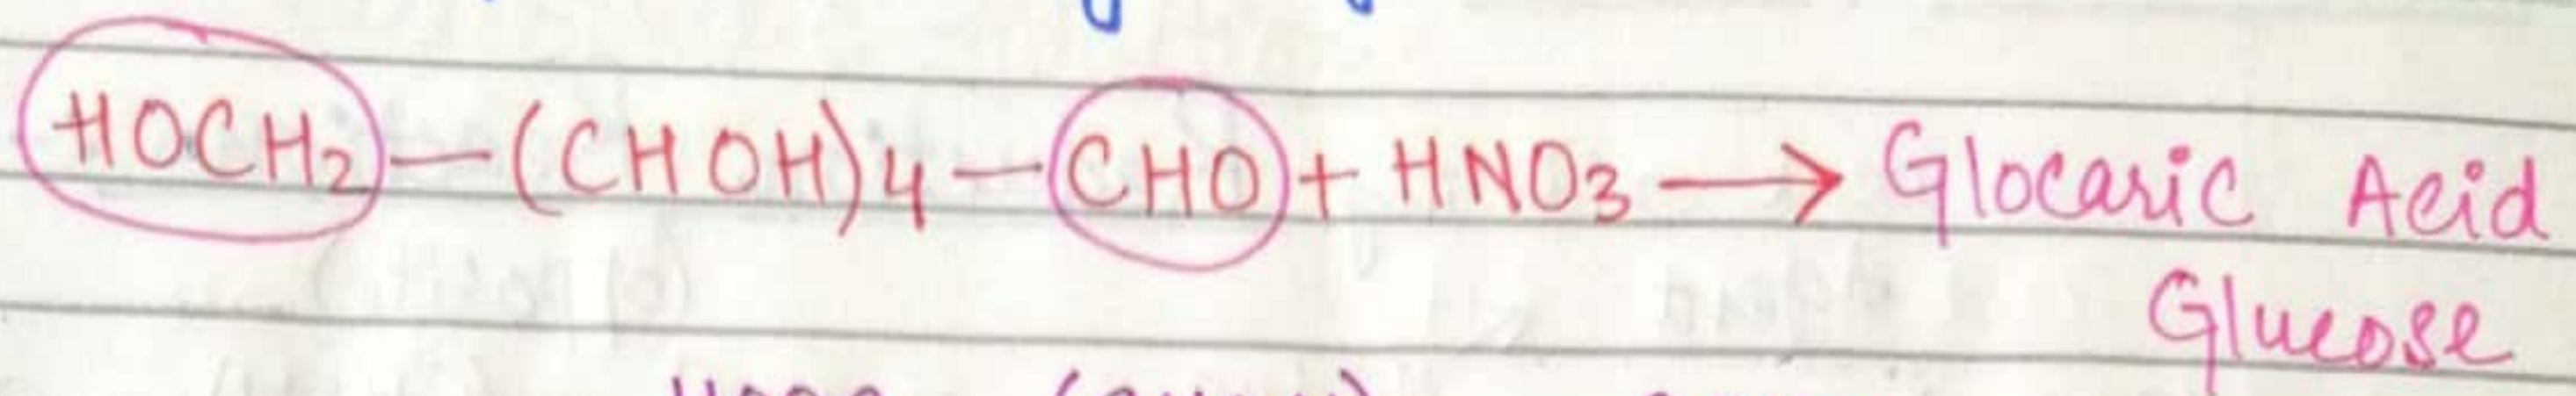 HOCH₂ — (CHOH)4 — CHO + HNO3 → Glocaric Acid
Glucose